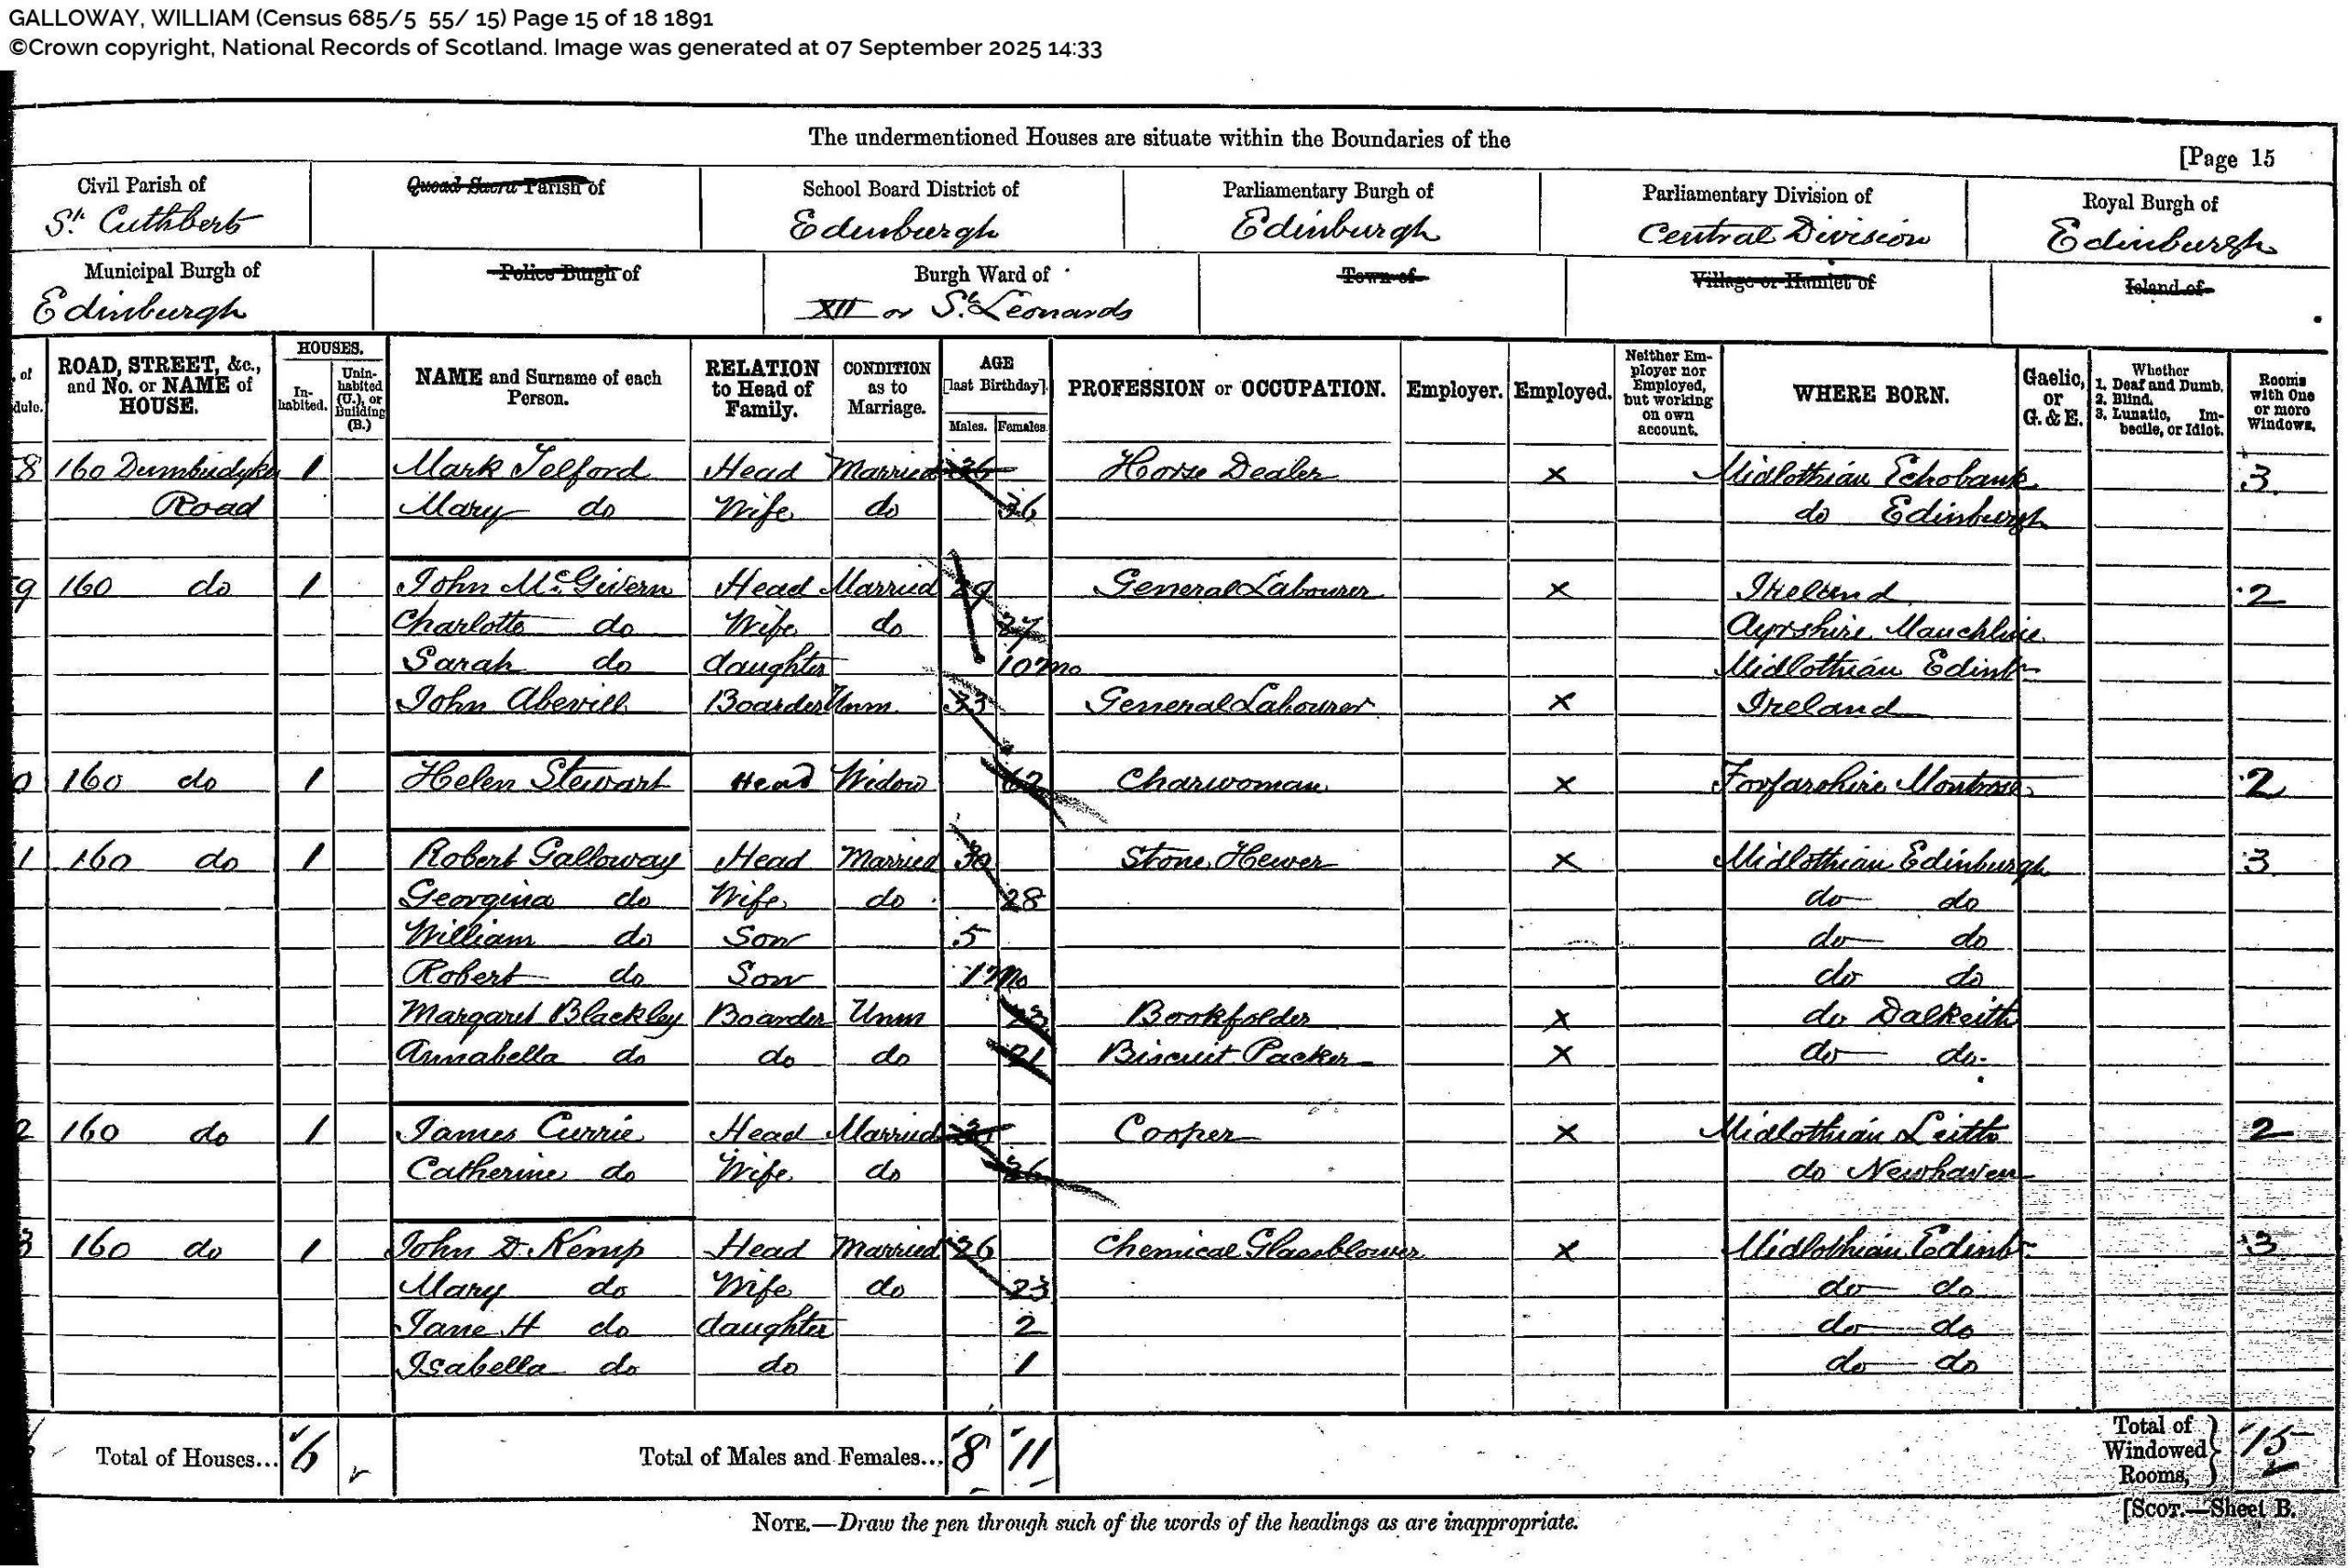 GALLOWAY, WILLIAM (Census 685/5 55/ 15) Page 15 of 18 1891
©Crown copyright, National Records of Scotland. Image was generated at 07 September 2025 14:33
The undermentioned Houses are situate within the Boundaries of the
[Page 15
Civil Parish of
St. Cuthberts
Quoad Sacra Parish of
School Board District of
Edinburgh
Parliamentary Burgh of
Edinburgh
Parliamentary Division of
Central Division
Royal Burgh of
Edinburgh
Municipal Burgh of
Edinburgh
Police Burgh of
Burgh Ward of
XII or St. Leonards
Town of
Village or Hamlet of
Island of
of
dule.
ROAD, STREET, &c., and No. or NAME of HOUSE.
HOUSES.
In-habited.
Unin-habited (U.), or Building (B.)
NAME and Surname of each Person.
RELATION to Head of Family.
CONDITION as to Marriage.
AGE [last Birthday].
Males. Females
PROFESSION or OCCUPATION.
Employer.
Employed.
Neither Em-ployer nor Employed, but working on own account.
WHERE BORN.
Gaelic, or G. & E.
Whether 1. Deaf and Dumb. 2. Blind. 3. Lunatic, Im-becile, or Idiot.
Rooms with One or more Windows.
8 160 Dumbiedykes 1 Mark Telford Head Married 36 Horse Dealer x Midlothian Echobank 3
Road Mary do Wife do 36 do Edinburgh
9 160 do 1 John McGivern Head Married 29 General Labourer x Ireland 2
Charlotte do Wife do 27 Ayrshire Mauchline
Sarah do daughter 10 mo Midlothian Edinbr
John Boarder Unm. 33 General Labourer x Ireland
0 160 do 1 Helen Stewart Head Widow Charwoman x Forfarshire Montrose 2
1 160 do 1 Robert Galloway Head Married 30 Stone Hewer x Midlothian Edinburgh 3
Georgina do Wife do 28 do do
William do Son 5 do do
Robert do Son 1 mo do do
Margaret Blackley Boarder Unm 23 Bookfolder x do Dalkeith
Annabella do do do 21 Biscuit Packer x do do
2 160 do 1 James Currie Head Married Cooper x Midlothian Leith 2
Catherine do Wife do 26 do Newhaven
3 160 do 1 John D. Kemp Head Married 26 Chemical Glassblower x Midlothian Edinbr 3
Mary do Wife do 23 do do
Jane H do daughter 2 do do
Isabella do do 1 do do
Total of Houses... 6
Total of Males and Females... 8 11
Total of Windowed Rooms, 15
[SCOT.—Sheet B.
NOTE.—Draw the pen through such of the words of the headings as are inappropriate.